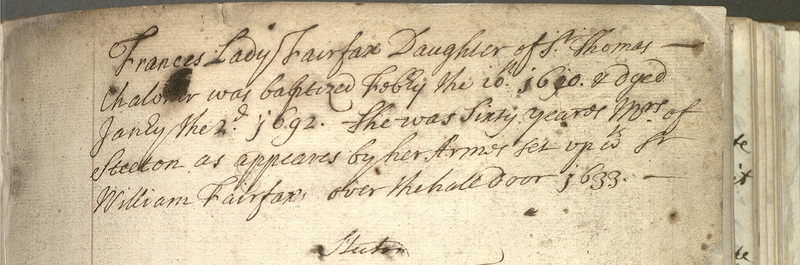 Frances Lady Fairfax Daughter of Sr. Thomas —
Chaloner was baptized Febry the 10th. 1610. & dyed
Janry the 2d. 1692. She was Sixty yeares Mrs. of
Steeton as appeares by her Armes set up wth Sr
William Fairfaxs over the hall Door 1633. —
Steeton